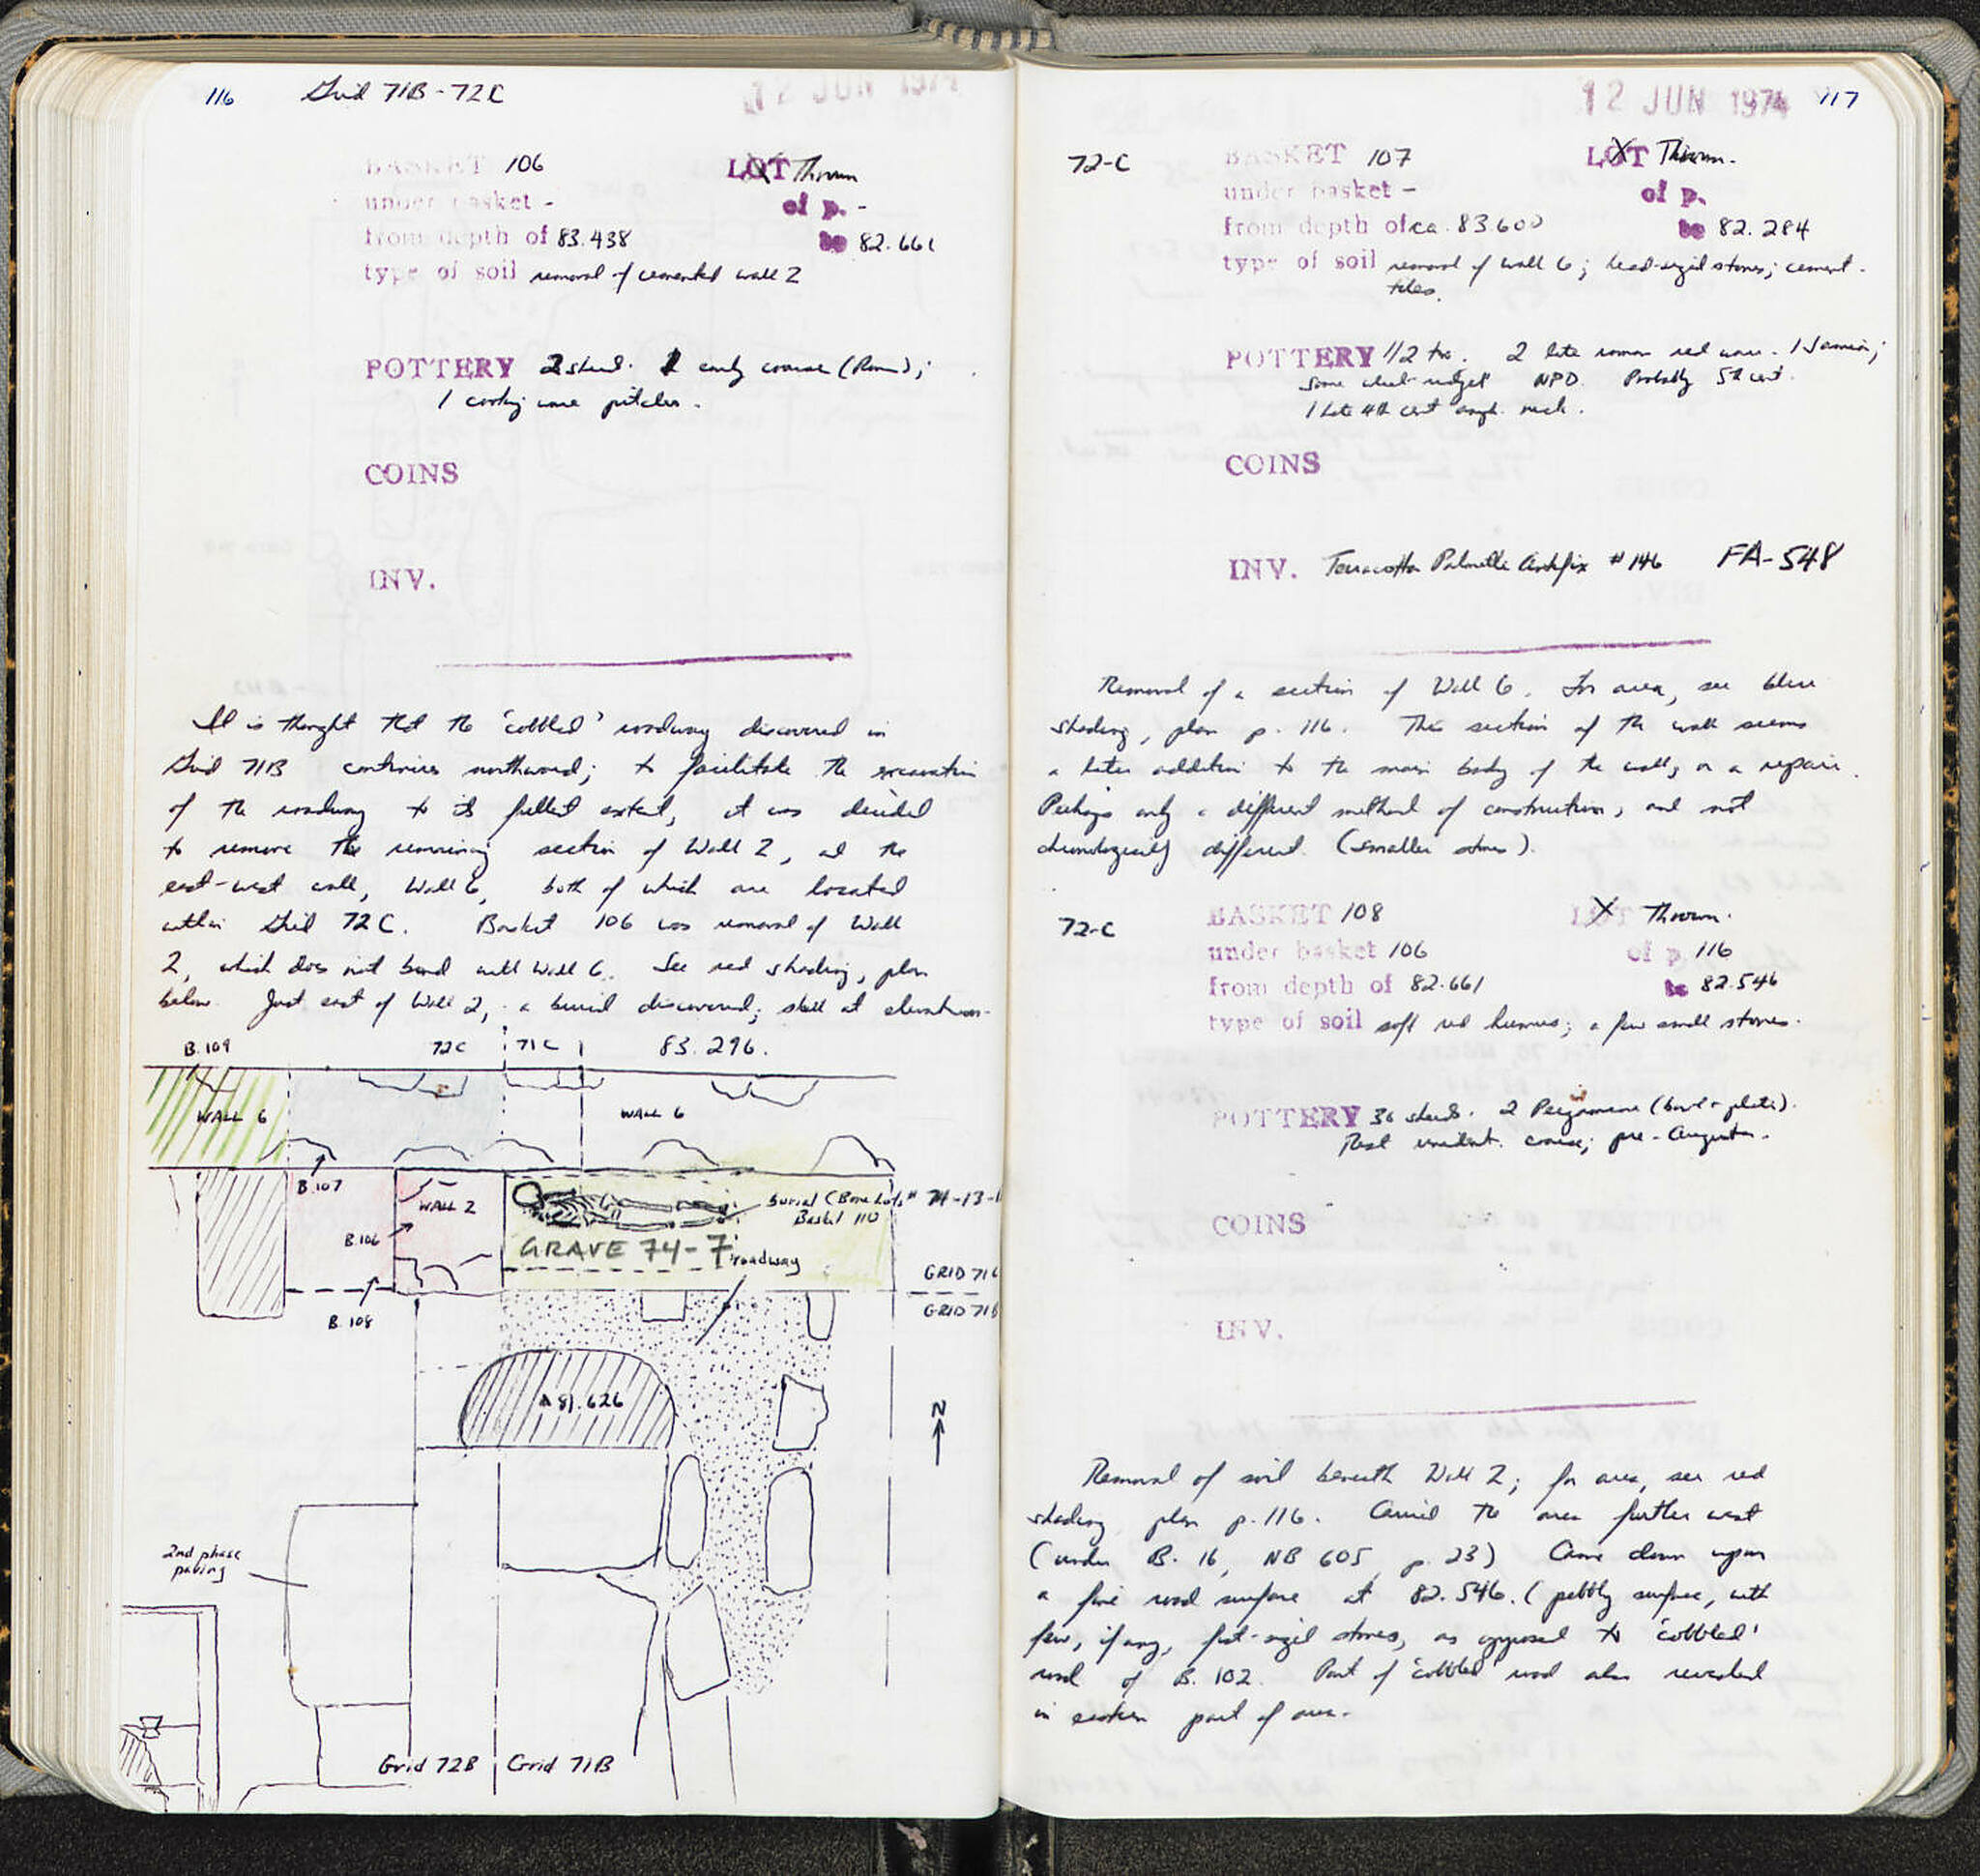 116 Grid 71B-72C 12 JUN 1974
BASKET 106 LOT Thrown
under basket - of p. -
from depth of 83.438 to 82.661
type of soil removal of cemented wall 2
POTTERY 2 sherd. 1 early coarse (Rom);
1 cooking ware pitcher.
COINS
INV.
It is thought that the 'cobbled' roadway discovered in
Grid 71B continues northward; to facilitate the excavation
of the roadway to its fullest extent, it was decided
to remove the remaining section of Wall 2, and the
east-west wall, Wall 6, both of which are located
within Grid 72C. Basket 106 was removal of Wall
2, which does not bond with Wall 6. See red shading, plan
below. Just east of Wall 2, a burial discovered; skull at elevation
83.296.
B.109 72C 71C
WALL 6 WALL 6
B.107 WALL 2 burial (Bone Lots # 74-13-1
Basket 110
B.106 GRAVE 74-7
roadway
GRID 71C
GRID 71B
B.108
81.626
N
2nd phase
paving
Grid 72B Grid 71B
12 JUN 1974 117
72-C BASKET 107 LOT Thrown.
under basket - of p.
from depth of ca. 83.600 to 82.284
type of soil removal of wall 6; head-sized stones; cement.
tiles.
POTTERY 1/2 tin. 2 late roman red ware. 1 Samian;
some wheel-ridged NPD. Probably 5th cent.
1 late 4th cent amph. neck.
COINS
INV. Terracotta Palmette Antefix #146 FA-548
Removal of a section of Wall 6. For area, see blue
shading, plan p. 116. This section of the wall seems
a later addition to the main body of the wall, or a repair.
Perhaps only a different method of construction, and not
chronologically different. (smaller stones).
72-C BASKET 108 LOT Thrown.
under basket 106 of p. 116
from depth of 82.661 to 82.546
type of soil soft red humus; a few small stones.
POTTERY 36 sherds. 2 Pergamene (bowl + plate).
Rest unident. coarse; pre-Augustan.
COINS
INV.
Removal of soil beneath Wall 2; for area, see red
shading plan p.116. Carried the area further west
(under B. 16, NB 605, p. 23) Came down upon
a fine road surface at 82.546. (pebbly surface, with
few, if any, fist-sized stones, as opposed to 'cobbled'
road of B. 102. Part of 'cobbled' road also revealed
in eastern part of area.